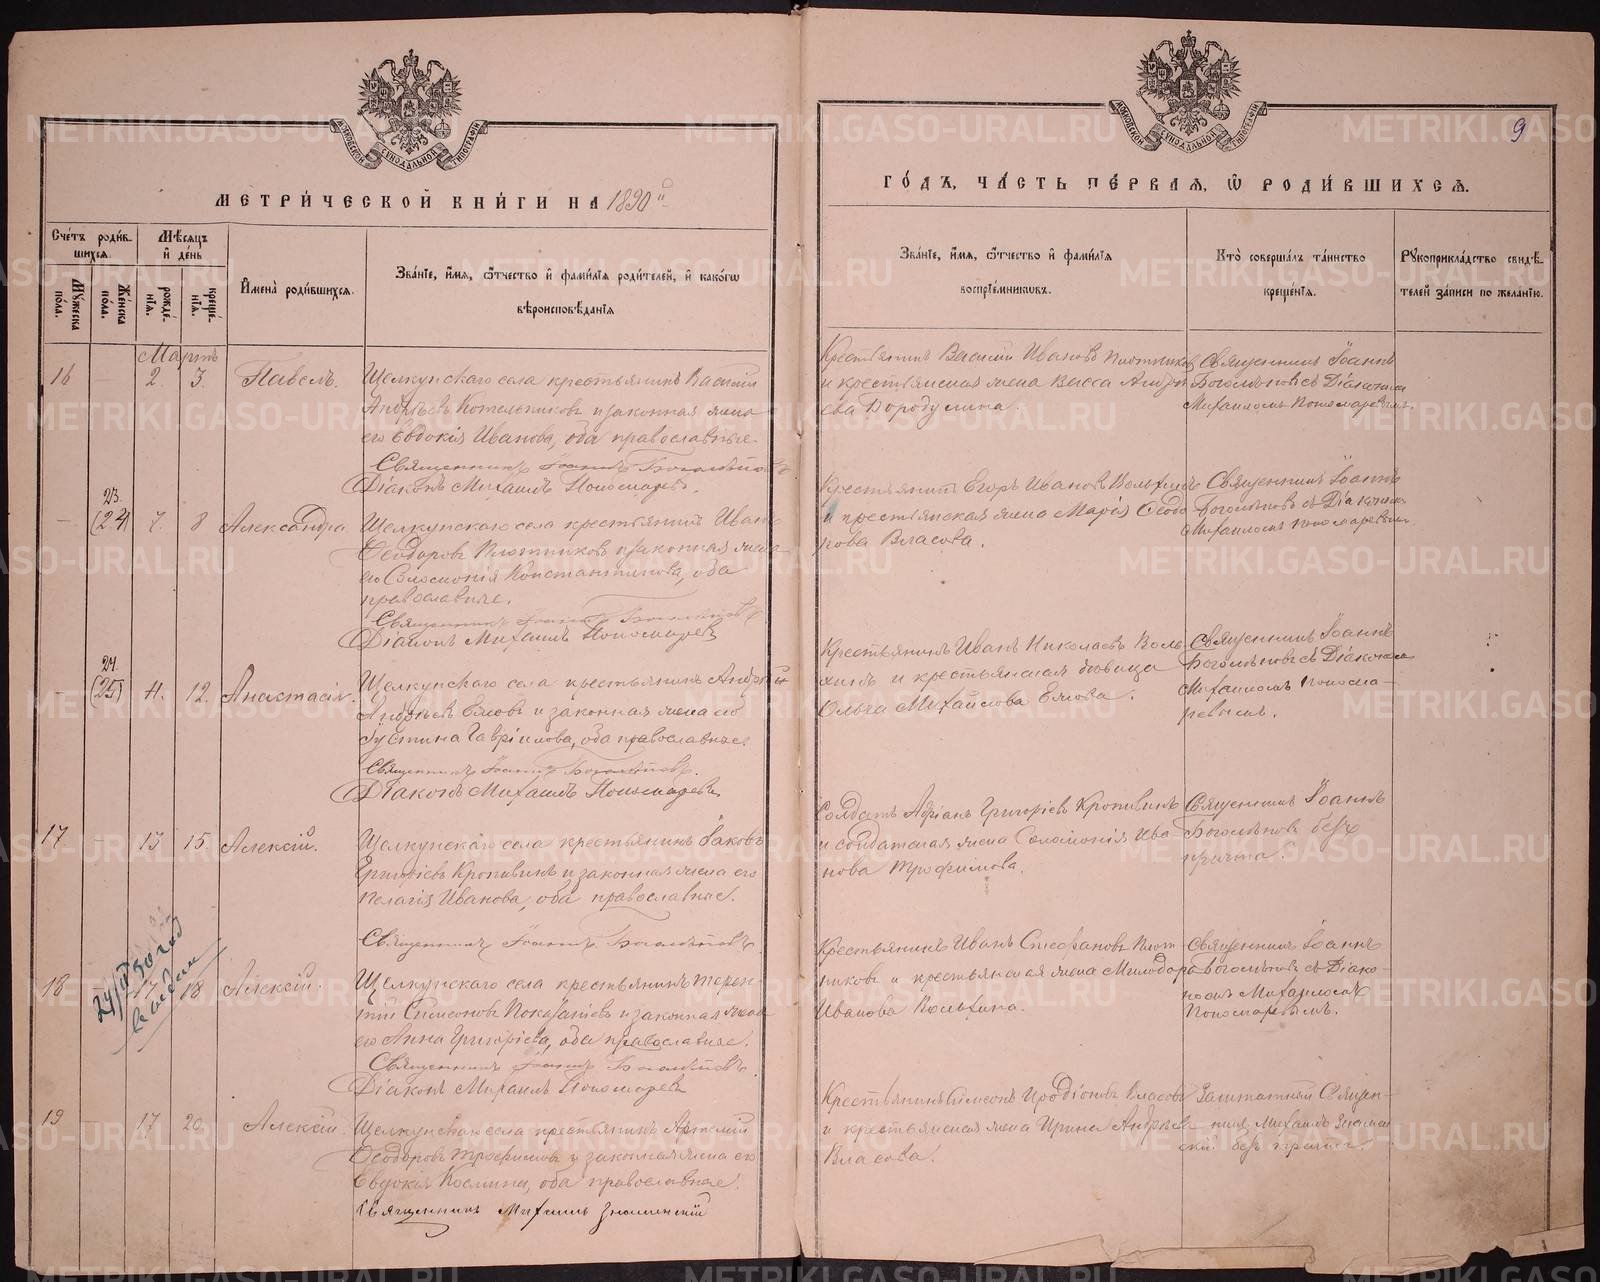 9
МОСКОВСКОЙ СѴНОДАЛЬНОЙ ТИПОГРАФІИ
МЕТРИ́ЧЕСКОЙ КНИ́ГИ НА 1890й
МОСКОВСКОЙ СѴНОДАЛЬНОЙ ТИПОГРАФІИ
ГО́ДЪ, ЧА́СТЬ ПЕ́РВАЯ, Ѡ҆ РОДИ́ВШИХСЯ.
Сче́тъ роди́вшихся.
Мꙋ́жеска по́ла.
Же́нска по́ла.
Мѣ́сяцъ и҆ де́нь
рожде́нїя.
креще́нїя.
И҆мена̀ роди́вшихся.
Зва́нїе, и҆́мя, ѻ҆́тчество и҆ фами́лїя роди́телей, и҆ како́гѡ
вѣроисповѣ́данїя
Зва́нїе, и҆́мя, ѻ҆́тчество и҆ фами́лїя
воспрїе́мниковъ.
Кто̀ соверша́лъ та́инство
креще́нїя.
Рꙋкоприкла́дство свидѣ́-
телей за́писи по жела́нїю.
Мартъ
16 — 2. 3. Павелъ.
Щелкунскаго села крестьянинъ Василій
Андреевъ Котельниковъ и законная жена
его Евдокія Иванова, оба православные.
Священникъ Іоаннъ Богомѣповъ
Діаконъ Михаилъ Пономаревъ.
Крестьянинъ Василій Ивановъ Плотников
и крестьянская жена Васса Андре
ева Бородулина.
Священникъ Іоаннъ
съ Діакономъ
Михаиломъ Пономаревымъ.
23.
— (24) 7. 8 Александра.
Щелкунскаго села крестьянинъ Иванъ
Ѳеодоровъ Плотниковъ и законная жена
его Соломонія Константинова, оба
православные.
Священникъ Іоаннъ
Діаконъ Михаилъ Пономаревъ
Крестьянинъ Егоръ Ивановъ
и крестьянская жена Марія Ѳеодо-
рова Власова.
Священникъ Іоаннъ
съ Діакономъ
Михаиломъ Пономаревымъ.
24.
— (25) 11. 12. Анастасія.
Щелкунскаго села крестьянинъ Андрей
Андреевъ и законная жена его
Іустина Гавріилова, оба православные.
Священникъ Іоаннъ
Діаконъ Михаилъ Пономаревъ
Крестьянинъ Иванъ Николаевъ Воль-
хинъ и крестьянская вдовица
Ольга Михайлова
Священникъ Іоаннъ
съ Діакономъ
Михаиломъ Понома-
ревымъ.
17 — 13 15. Алексій.
Щелкунскаго села крестьянинъ Іаковъ
Григоріевъ Кропивинъ и законная жена его
Пелагія Иванова, оба православные.
Священникъ Іоаннъ
Солдатъ Адріанъ Григоріевъ Кропивинъ
и солдатская жена Соломонія Ива
нова Трофимова.
Священникъ Іоаннъ
безъ
причта.
18 17 18 Алексій.
Щелкунскаго села крестьянинъ Терен-
тій Симеоновъ и законная жена
его Анна Григоріева, оба православные.
Священникъ Іоаннъ
Діаконъ Михаилъ Пономаревъ
Крестьянинъ Иванъ Стефановъ Плот-
никовъ и крестьянская жена Милодора
Иванова Вольхина.
Священникъ Іоаннъ
съ Діако-
номъ Михаиломъ
Пономаревымъ.
19 — 17 20. Алексій.
Щелкунскаго села крестьянинъ Артемій
Ѳеодоровъ Трофимовъ и законная жена его
Евдокія Космина, оба православные.
Священникъ Михаилъ Знаменскій
Крестьянинъ Симеонъ Иродіоновъ Власовъ
и крестьянская жена Ирина Андреев-
Власова.
Заштатный Священ-
никъ Михаилъ Знамен-
скій безъ причта.
METRIKI.GASO-URAL.RU